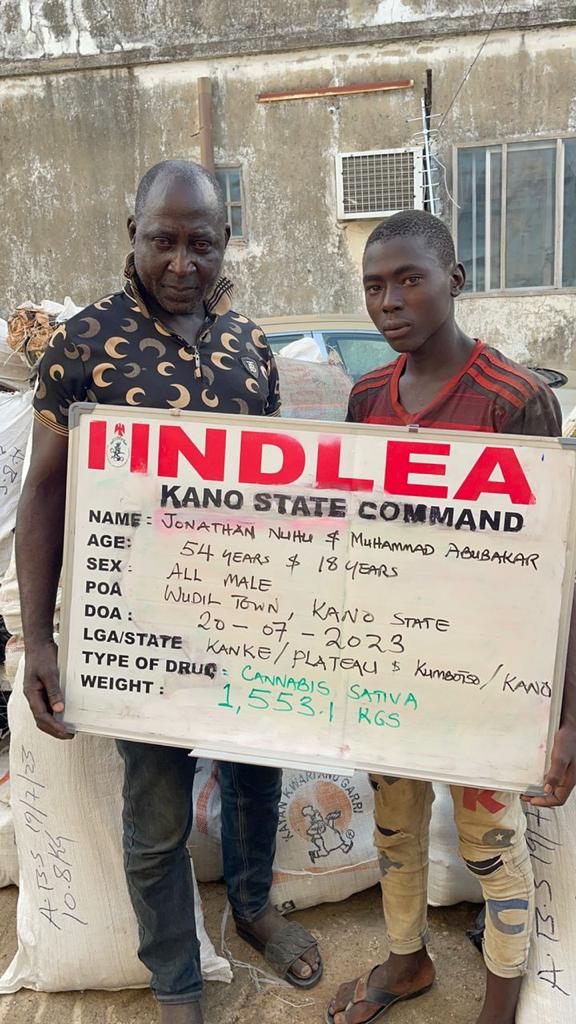 NDLEA
KANO STATE COMMAND
NAME: JONATHAN NUHU & MUHAMMAD ABUBAKAR
AGE: 54 YEARS & 18 YEARS
SEX: ALL MALE
POA WUDIL TOWN, KANO STATE
DOA: 20-07-2023
LGA/STATE KANKE/PLATEAU & KUMBOTSO/KANO
TYPE OF DRUG: CANNABIS SATIVA
WEIGHT: 1,553.1 KGS
KAYAN KWARIANO GARRI
A-B-S 19/7/23
10.8kg
A-B-S 19/7